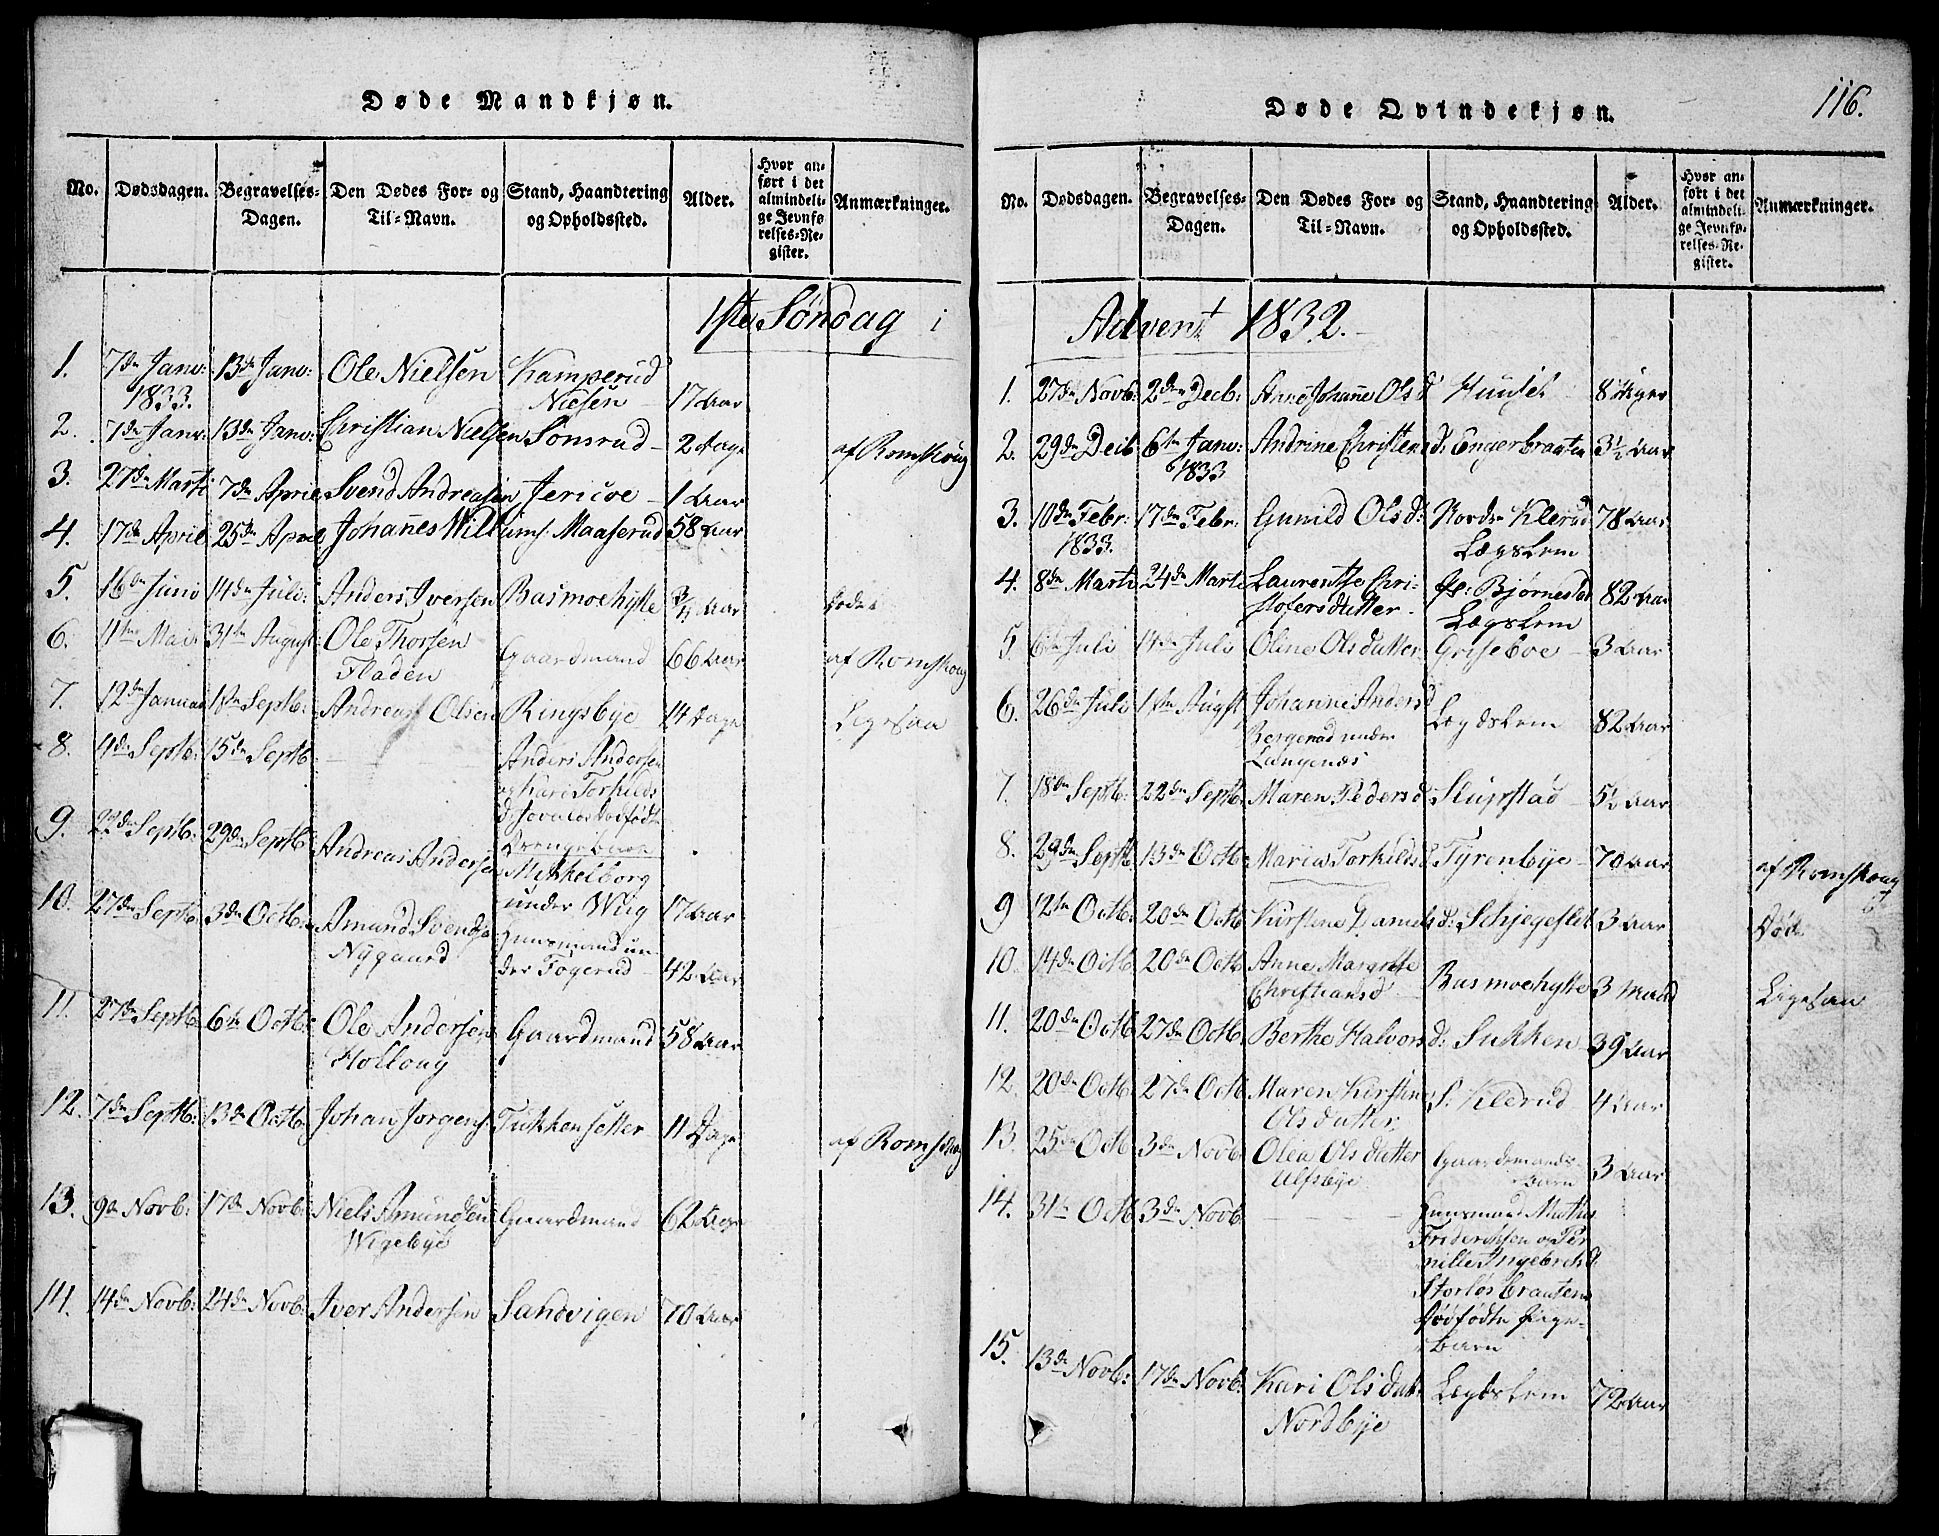 Døde Mandkjøn.
No. Dødsdagen. Begravelses-Dagen. Den Dødes For- og Til-Navn. Stand, Haandtering og Opholdssted. Alder. Hvor anført i det almindelige Jevnførelses-Register. Anmærkninger.
1ste Søndag i
1. 7de Janv: 1833. 13de Janv: Ole Nielsen Kamperud Niesen 17 Aar
2. 7de Janv: 13de Janv: Christian Nielsen Sonsrud 2 Dage af Romskoug
3. 27de Marti 7de April Svend Andreasen Jericoe 1 Aar
4. 17de April 25de April Johanes Wilhums: Maaserud 58 Aar
5. 16de Juni 14de Juli: Anders Iversen Basmoehytte Aar
6. 11te Mai 31te August Ole Thorsen Fladen Gaardmand 66 Aar af Romskoug
7. 12de Januar 1ste Septb: Andreas Olsen Ringsbye 14 Dage Ligesaa
8. 4de Septb: 15de Septb — — Anders Andersen og Kari Torkilds d: dødfødte Drengebarn
9. 22de Septb: 29de Septb: Andreas Andersen Mikkelborg under Wiig 17 Aar
10. 27de Septb: 3de Octb: Amund Svends. Nygaard Huusmand under Togerud 42 Aar
11. 27de Septb: 6te Octb: Ole Andersen Holloug Gaardmand 58 Aar
12. 7de Septb: 13de Octb: Johan Jørgens: Tukkensetter 11 Dage af Romskoug
13. 9de Novb: 17de Novb: Niels Amundsen Wigebye Gaardmand 62 Aar
14. 14de Novb: 24de Novb: Iver Andersen Sandvigen 70 Aar
Døde Qvindekjøn.
116.
No. Dødsdagen. Begravelses-Dagen. Den Dødes For- og Til-Navn. Stand, Haandtering og Opholdssted. Alder. Hvor anført i det almindelige Jevnførelses-Register. Anmærkninger.
Advent 1832.
1. 27de Novb: 2den Decb: Anne Johane Olsd Huuset 8 Uger
2. 29de Decb 6te Janv: 1833 Andrine Christens d: Engerbraaten 3½ Aar
3. 10de Febr: 1833. 17de Febr: Gunild Olsd: Nordr Klerud Lægslem 78 Aar
4. 8de Marti 24de Marti Laurentse Christofersdatter Bjørnestad Lægslem 82 Aar
5. 6te Juli 14de Juli Oline Olsdatter Griseboe 3 Aar
6. 26de Juli 1ste Augst Johanne Andersd Bergerud under Langenæs Lægdslem 82 Aar
7. 18de Septb: 22de Septb: Maren Pedersd Slupstad 5½ Aar
8. 29de Septb 13de Octb: Maria Torkildsd: Tyrenbye 70 Aar af Romskoug
9 12te Octb: 20de Octb Kirstene Daniels d: Schjegeslet 3 Aar Død
10. 14de Octb. 20de Octb Anne Margrete Christiansd Basmoehytte 3 Maand Ligesaa
11. 20de Octb 27de Octb: Berthe Halvors d: Sukken 39 Aar
12. 20de Octb: 27de Octb Maren Kirstine Olsdatter S. Klerud 4 Aar
13. 25de Octb 3de Novb. Olea Olsdatter Ulfsbye Gaardsmands Barn 3 Aar
14. 31te Octb 3de Novb — — — Huusmand Mathis Fridericksen og Pernille Ingebrichsd Storløsbraatens dødfødte Pigebarn
15. 13de Novb: 17de Novb: Kari Olsdat: Nordbye Lægdslem 72 Aar